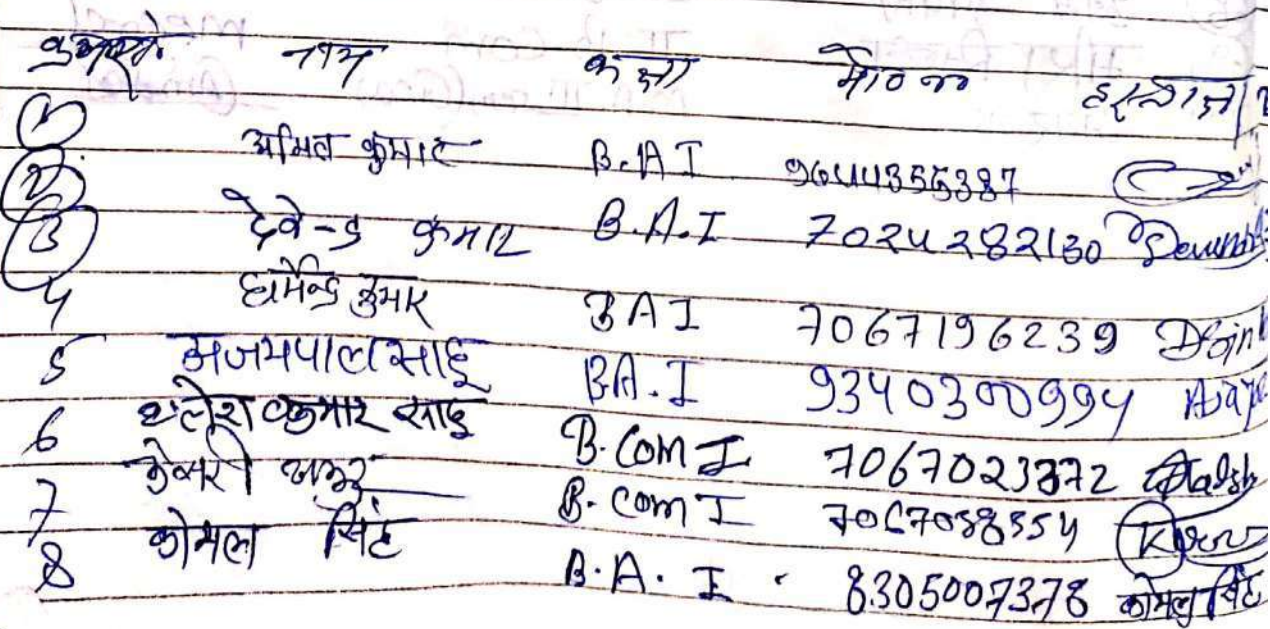 नाम कक्षा मो० न० हस्ताक्षर
1 अमित कुमार B.A I 9644355387
2 देवेन्द्र कुमार B.A.I 7024282130
3 धर्मेन्द्र कुमार BA I 7067196239
4 अजयपाल साहू BA.I 9340300994
5 शैलेश कुमार साहू B.COM I 7067023372
6 केसरी B.COM I 7067038354
7 कोमल सिंह B.A. I 8305007378 कोमल सिंह
8